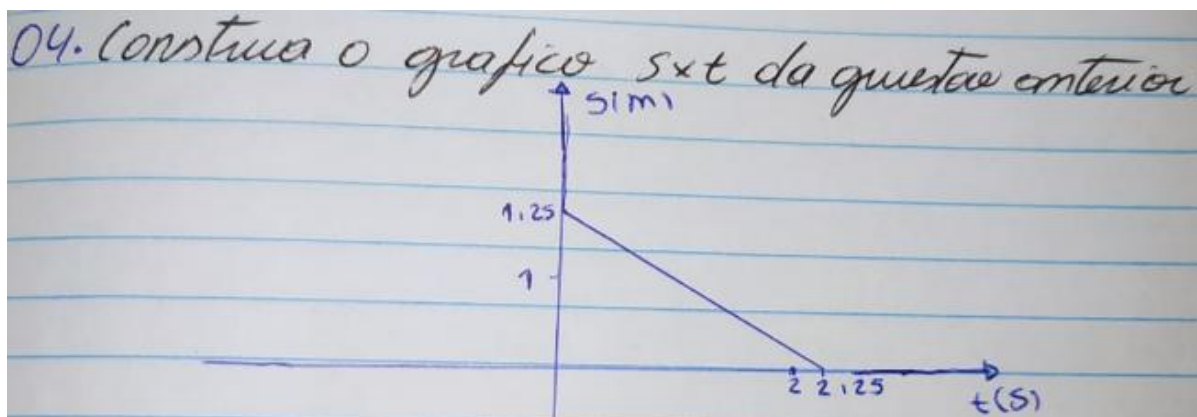 04. Construa o grafico sxt da questão anterior
S(m)
1,25
1
2 2,25
t(s)